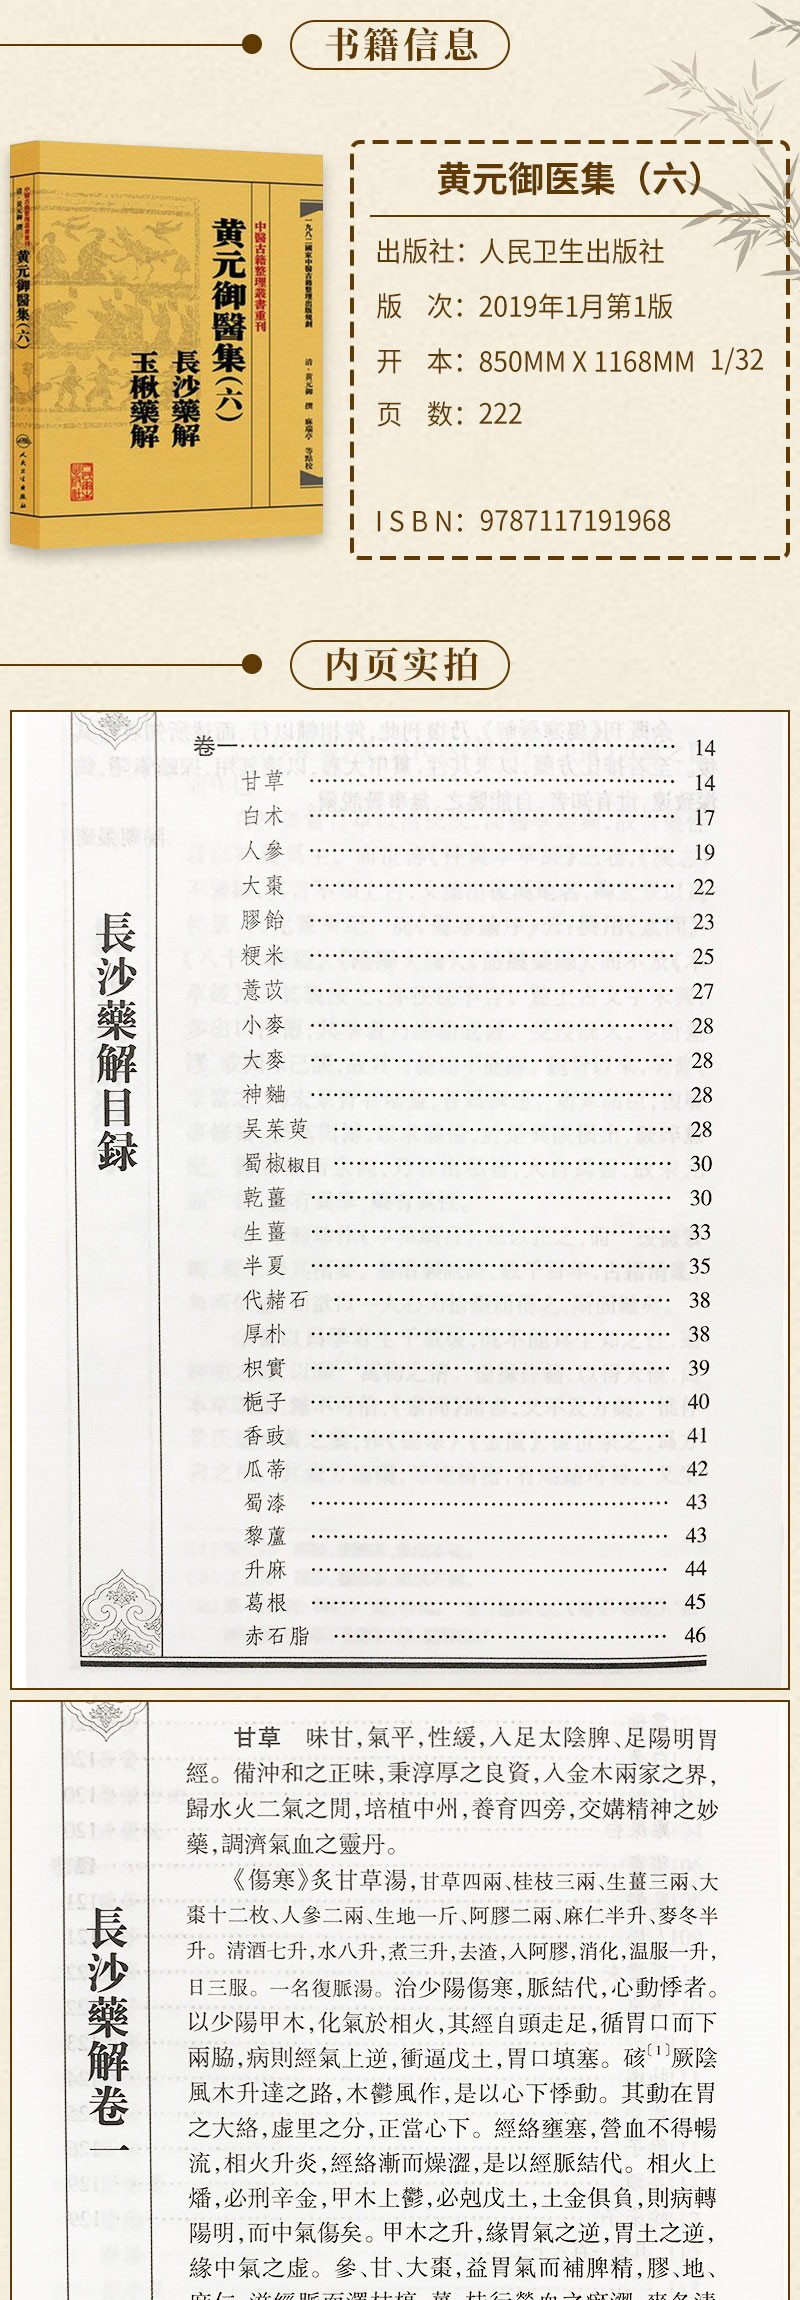 书籍信息
中醫古籍整理叢書重刊
清·黄元御 撰
黄元御醫集(六)
人民卫生出版社
一九八二國家中醫古籍整理出版規劃
中醫古籍整理叢書重刊
黄元御醫集(六)
長沙藥解
玉楸藥解
清·黄元御 撰 麻瑞亭 等點校
黄元御医集（六）
出版社：人民卫生出版社
版 次：2019年1月第1版
开 本：850MM X 1168MM 1/32
页 数：222
ISBN：9787117191968
内页实拍
長沙藥解目録
卷一 14
甘草 14
白术 17
人參 19
大棗 22
膠飴 23
粳米 25
薏苡 27
小麥 28
大麥 28
神麯 28
吴茱萸 28
蜀椒椒目 30
乾薑 30
生薑 33
半夏 35
代赭石 38
厚朴 38
枳實 39
梔子 40
香豉 41
瓜蒂 42
蜀漆 43
藜蘆 43
升麻 44
葛根 45
赤石脂 46
長沙藥解卷一
甘草 味甘,氣平,性緩,入足太陰脾、足陽明胃
經。備沖和之正味,秉淳厚之良資,入金木兩家之界,
歸水火二氣之間,培植中州,養育四旁,交媾精神之妙
藥,調濟氣血之靈丹。
《傷寒》炙甘草湯,甘草四兩、桂枝三兩、生薑三兩、大
棗十二枚、人參二兩、生地一斤、阿膠二兩、麻仁半升、麥冬半
升。清酒七升,水八升,煮三升,去渣,入阿膠,消化,温服一升,
日三服。一名復脈湯。治少陽傷寒,脈結代,心動悸者。
以少陽甲木,化氣於相火,其經自頭走足,循胃口而下
兩脇,病則經氣上逆,衝逼戊土,胃口填塞。硋〔1〕厥陰
風木升達之路,木鬱風作,是以心下悸動。其動在胃
之大絡,虚里之分,正當心下。經絡壅塞,營血不得暢
流,相火升炎,經絡漸而燥澀,是以經脈結代。相火上
燔,必刑辛金,甲木上鬱,必剋戊土,土金俱負,則病轉
陽明,而中氣傷矣。甲木之升,緣胃氣之逆,胃土之逆,
緣中氣之虚。參、甘、大棗,益胃氣而補脾精,膠、地、